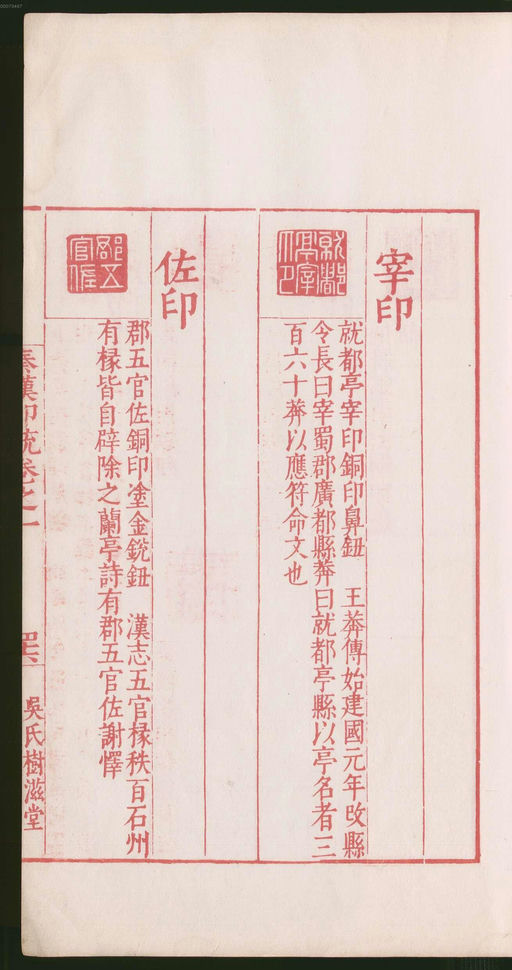 宰印
就都亭宰印
就都亭宰印銅印鼻鈕　王莽傳始建國元年改縣
令長曰宰蜀郡廣都縣莽曰就都亭縣以亭名者三
百六十莽以應符命文也
佐印
郡五官佐
郡五官佐銅印塗金銳鈕　漢志五官椽秩百石州
有椽皆自辟除之蘭亭詩有郡五官佐謝懌
秦漢印統卷之一
吳氏樹滋堂
00073447